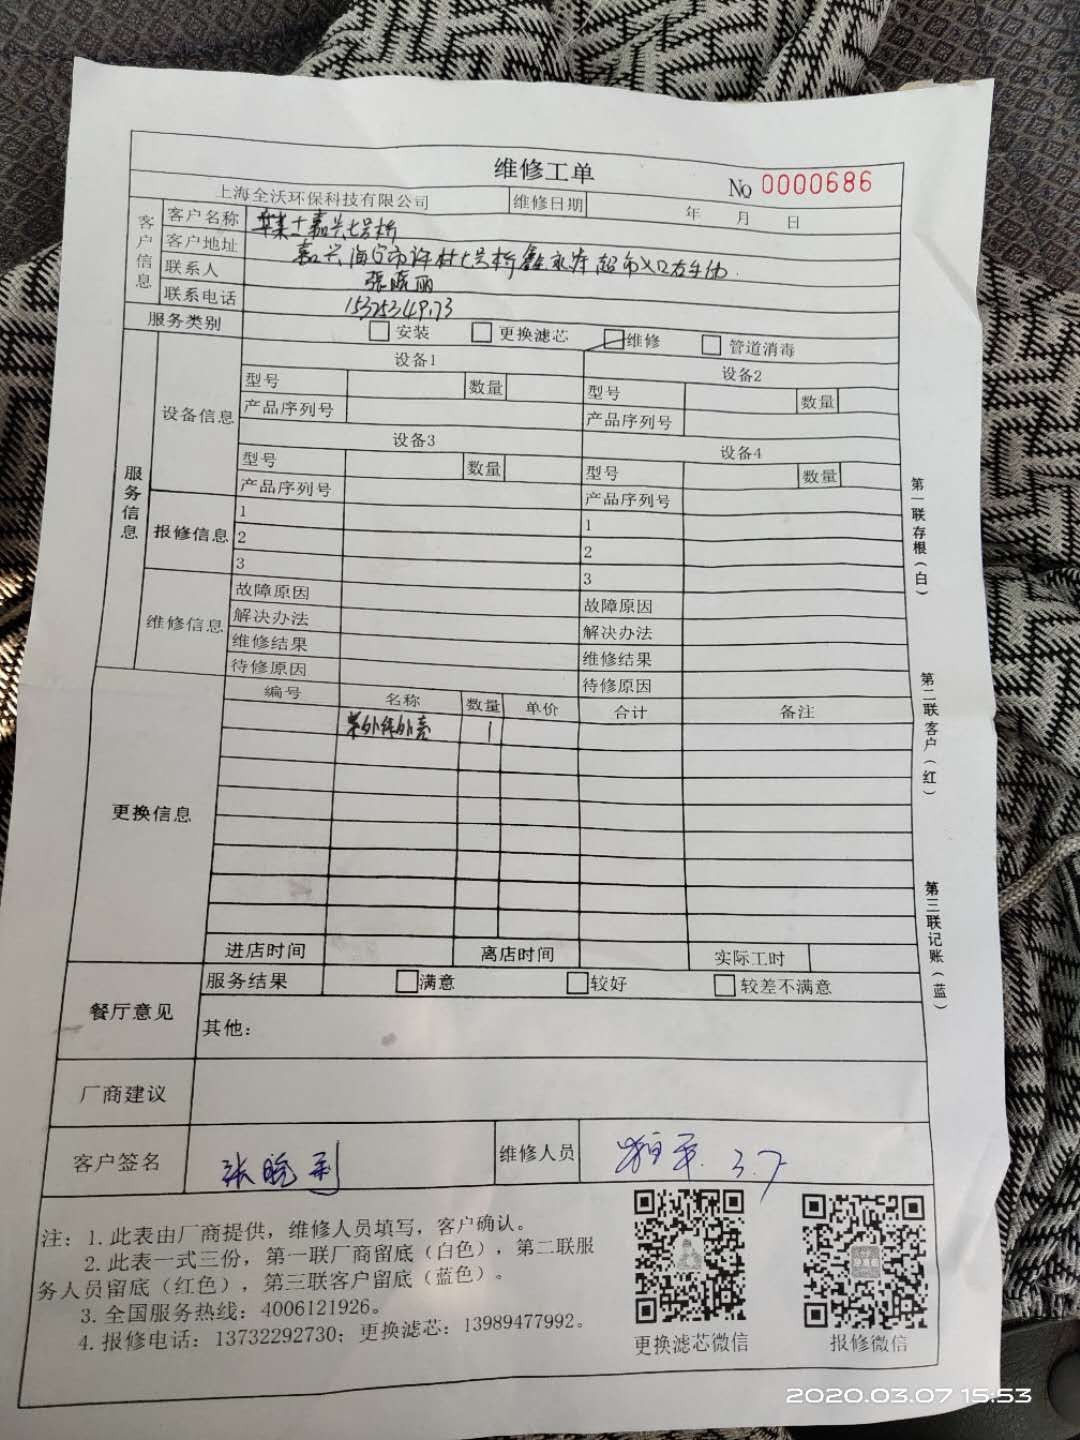 维修工单
No 0000686
上海全沃环保科技有限公司 维修日期 年 月 日
客户信息
客户名称 华莱士嘉兴七号桥
客户地址 嘉兴海宁市许村七号桥鑫永发超市
联系人 张晓丽
联系电话
服务类别 安装 更换滤芯 维修 管道消毒
服务信息
设备信息
设备1 设备2
型号 数量 型号 数量
产品序列号 产品序列号
设备3 设备4
型号 数量 型号 数量
产品序列号 产品序列号
报修信息
1 1
2 2
3 3
维修信息
故障原因 故障原因
解决办法 解决办法
维修结果 维修结果
待修原因 待修原因
更换信息
编号 名称 数量 单价 合计 备注
紫外线外壳 1
进店时间 离店时间 实际工时
餐厅意见
服务结果 满意 较好 较差不满意
其他：
厂商建议
客户签名 张晓丽 维修人员 3.7
注：1. 此表由厂商提供，维修人员填写，客户确认。
2. 此表一式三份，第一联厂商留底（白色），第二联服
务人员留底（红色），第三联客户留底（蓝色）。
3. 全国服务热线：4006121926。
4. 报修电话：13732292730；更换滤芯：13989477992。
更换滤芯微信 报修微信
第一联存根（白）
第二联客户（红）
第三联记账（蓝）
2020.03.07 15:53